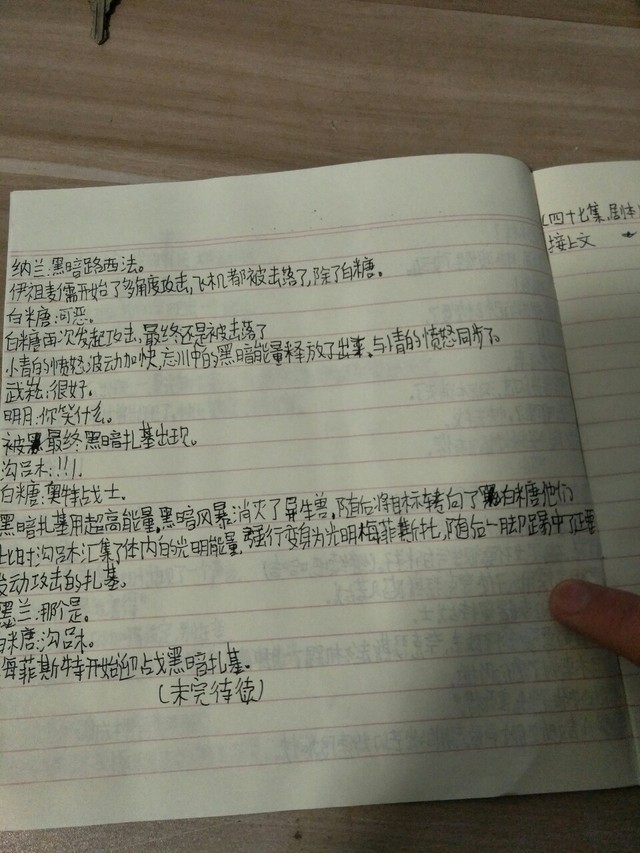 纳兰:黑暗路西法。
伊祖麦儒开始了多角度攻击,飞机都被击落了,除了白糖。
白米唐:可恶。
白米唐再次发起攻击,最终还是被击落了
小青的愤怒波动加快,忘川中的黑暗能量释放了出来。与小青的愤怒同步了。
武崧:很好。
明月:你笑什么。
被最终黑暗扎基出现。
沟呂木:!!!.
白米唐:奥特战士。
黑暗扎基用超高能量,黑暗风暴消灭了异生兽。随后将目标转向了白米唐他们
此时沟呂木汇集了体内的光明能量,强行变身为光明梅菲斯托,随后一脚踢中了正要
发动攻击的扎基。
墨兰:那个是。
白米唐:沟呂木。
梅菲斯特开始迎战黑暗扎基。
(未完待续)
(四十七集,剧本
接上文